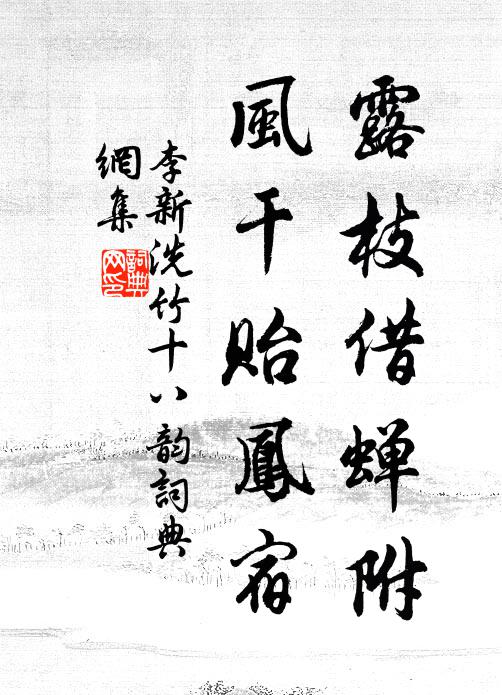 露枝借蝉附
風干貽鳳宿
李新洗竹十八韵詞典
網集
詞典
网印